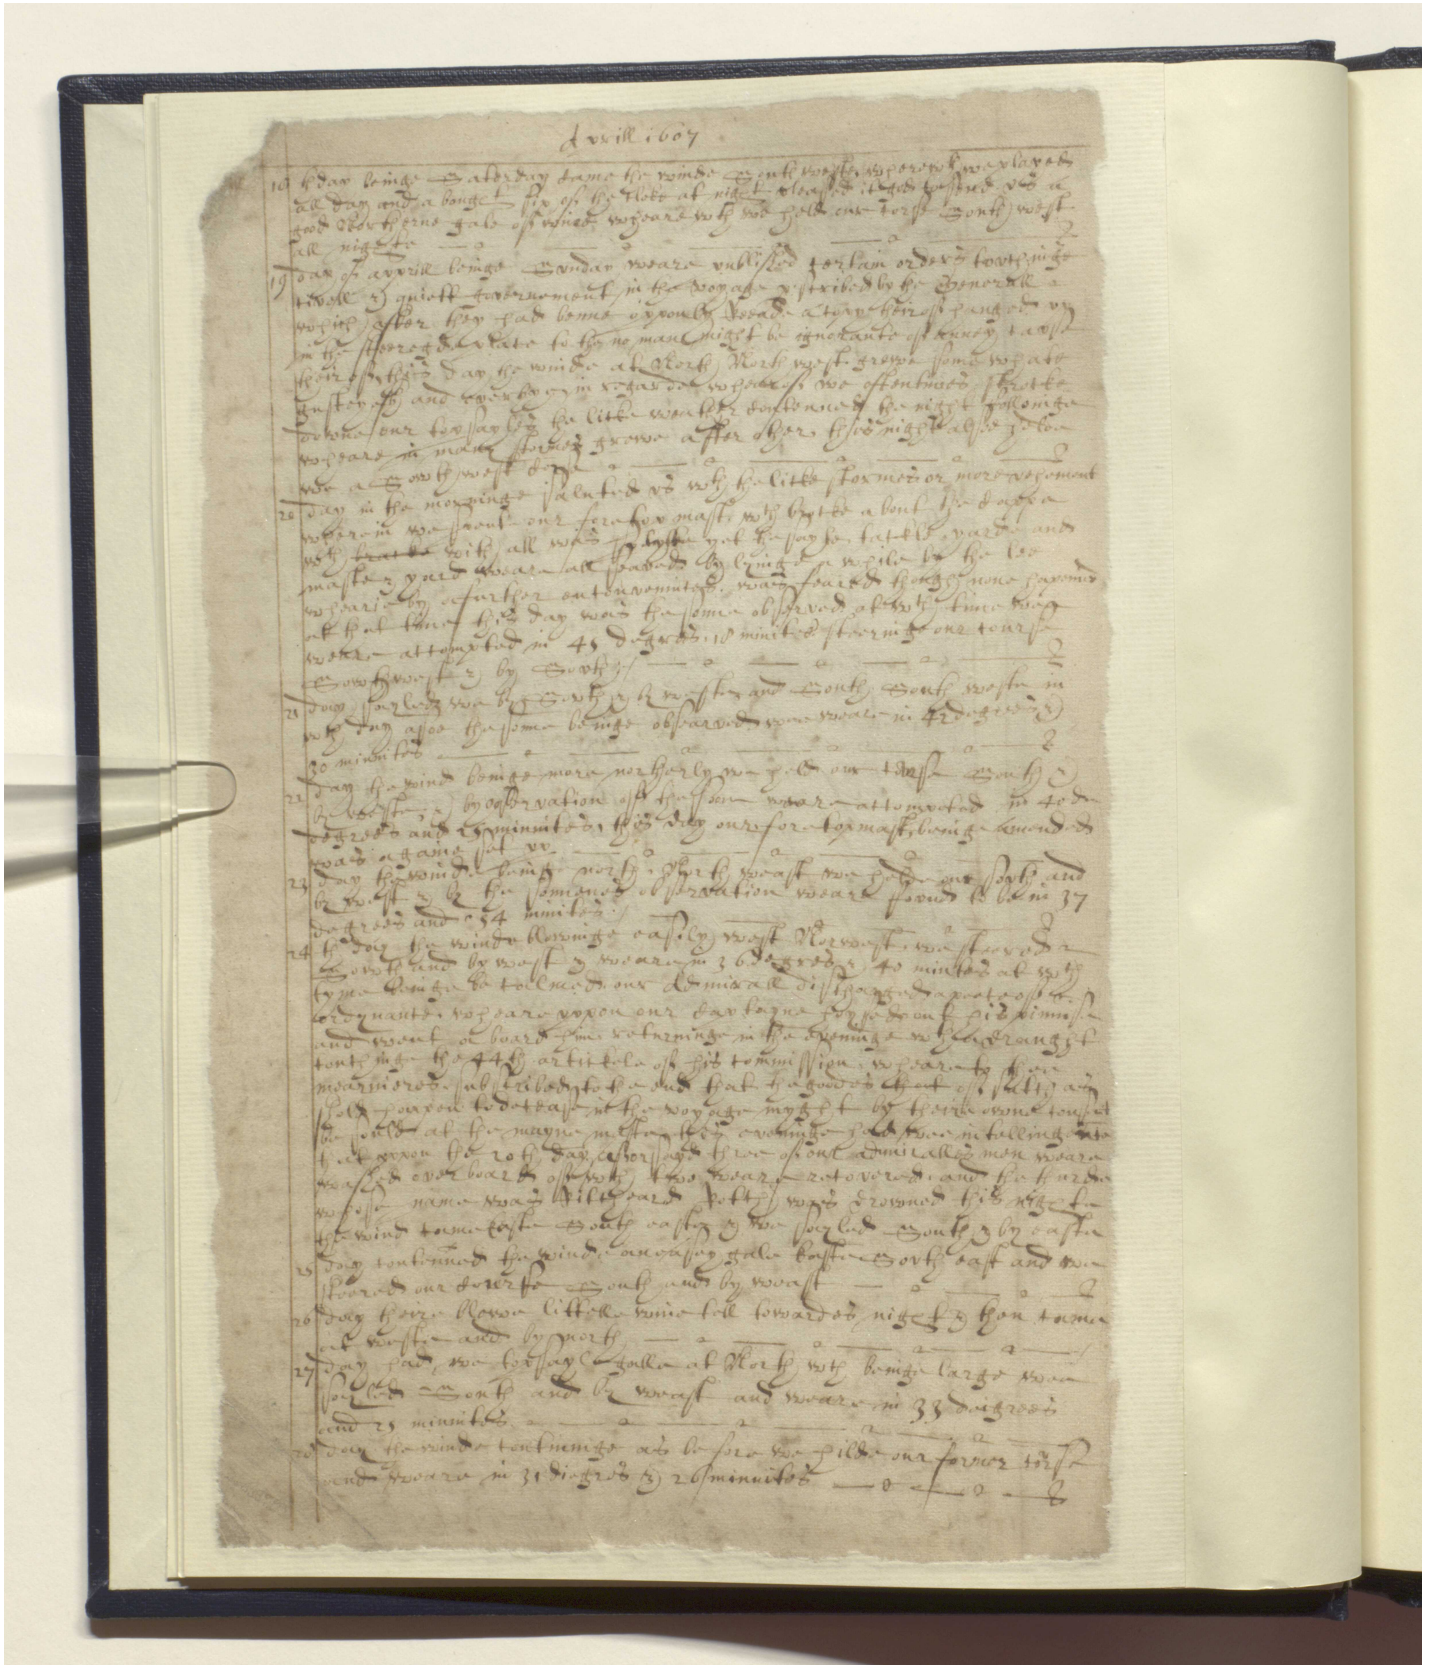 Aprill 1607
18 th day beinge Saterday came the winde South weste, wherewth we plaied
all day and aboughtt six of the cloke at night pleased it god to send vs a
good Northerne gale of winde, wheare wth we held our corse South west
all nighte
19 day of Apprill beinge Sunday weare published certain orders touchinge
civell & quiett governement in the voyage prescribed by the Generall
which after they had benne oppenly reade a copy theirof hanged vp
in the steeredge place to thend no man might be ignorante of anney clause
theirof, this day the winde at North North west grewe some whate
gustey and overblowe in regarde whearof we oftentimes strooke
downe our topsayles the like weather contenned the night followinge
wheare in many stormes grewe after other, this night also helde
we a South west corse
20 day in the morninge saluted vs wth the like stormes or more vehement
wherein we spent our foretop mast, wth broke about the cappe
wth with all was splytte yet the sayle, tackle yarde and
maste & yard weare all saved by lyinge a while by the lee
whearby a further inconvenience was feared though none hapened
at that time this day was the sonne observed at wth time we
weare attempted in 45 degrees 18 minites steeringe our course
Southwest & by South
21 day sayled we by South & by weste and South South weste in
wth day also the sonne beinge observed wee weare in 42 degrees &
30 minnites
22 day the wind beinge more northerly we held our corse South &
by weste & by observation of the sonne weare attempted in 40
degrees and 15 minnites, this day our foretopmast beinge amended
was againe set vp
23 day the winde beinge north North weast we helde our south and
by west & by the sonnes observation weare found to be in 37
degrees and 54 minites
24 th day the winde blowinge easily west Norwest we steered
South and by west & weare in 36 degres & 40 minites at wth
tyme beinge becallmed our Admirall discharged a peece of
ordynance, wheare vppon our Captayne hoysed out his pinnise
and went aboard him returninge in the eveninge wth a draught
touchinge the 44th artickele of his commission, wheare to they
mearineres subscribed to the end that the goodes of such as
shold happen to decease in the voyage myght by theire owne consent
be sould at the mayne maste, this eveninge had wee intelligence
that vppon the 20th day aforsayd three of our admiralles men weare
washed overboard of wth two weare recovered, and the thurde
whose name was Ritcheard Pottes was drowned this nighte
the wind came Este South easte & we sayled South & by easte
25 day contenned the winde an easey gale Easte South east and we
steered our courese South and by weast
26 day theire blowe littelle wine tell towardes night & then came
at weste and by north
27 day had we topsayle galle at North wth beinge large wee
sayled South and by weast and weare in 33 degrees
and 25 minnites
28 day the winde continuinge as before we hilde our former corse
and weare in 31 diegres & 26 minnites